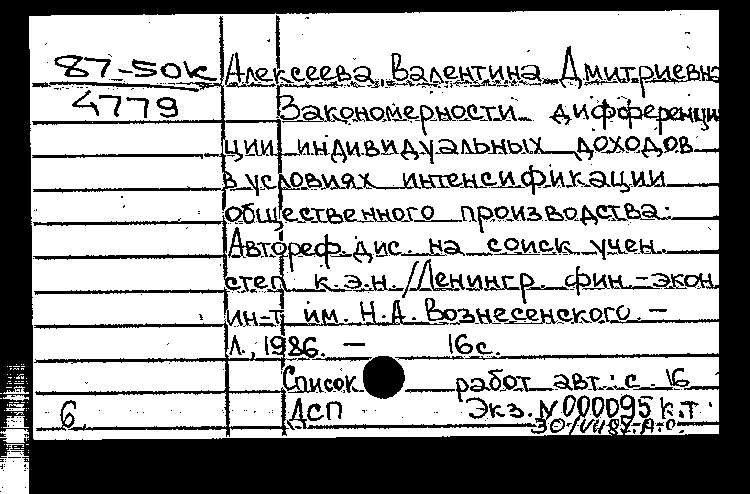 87-50к Алексеева Валентина Дмитриевна
4779 Закономерности дифференци
ции индивидуальных доходов
в условиях интенсификации
общественного производства:
Автореф. дис. на соиск учен.
степ к.э.н. /Ленингр. фин.-экон
ин-т им. Н.А. Вознесенского. –
Л., 1986. – 16 с.
Список работ авт.: с. 16
6. ДСП Экз. N 000095 к.т.